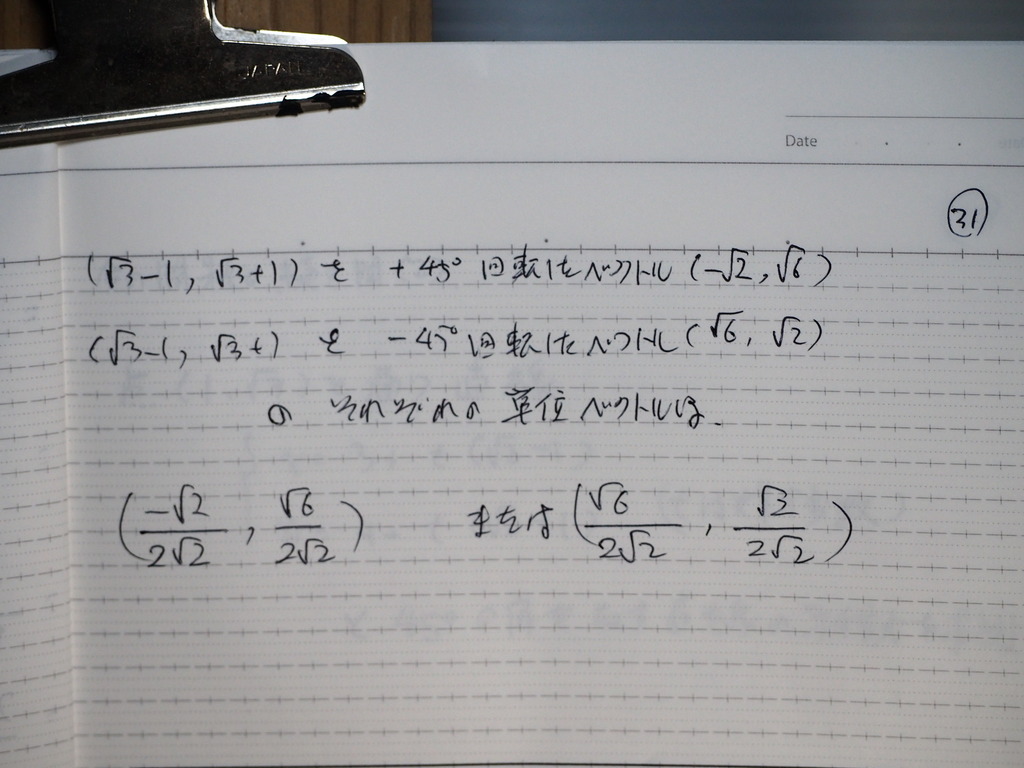 JAPAN
Date
31
(√3-1, √3+1) を +45° 回転したベクトル (-√2, √6)
(√3-1, √3+) を -45° 回転したベクトル (√6, √2)
の それぞれの 単位ベクトルは.
(-√2/2√2, √6/2√2) または (√6/2√2, √2/2√2)